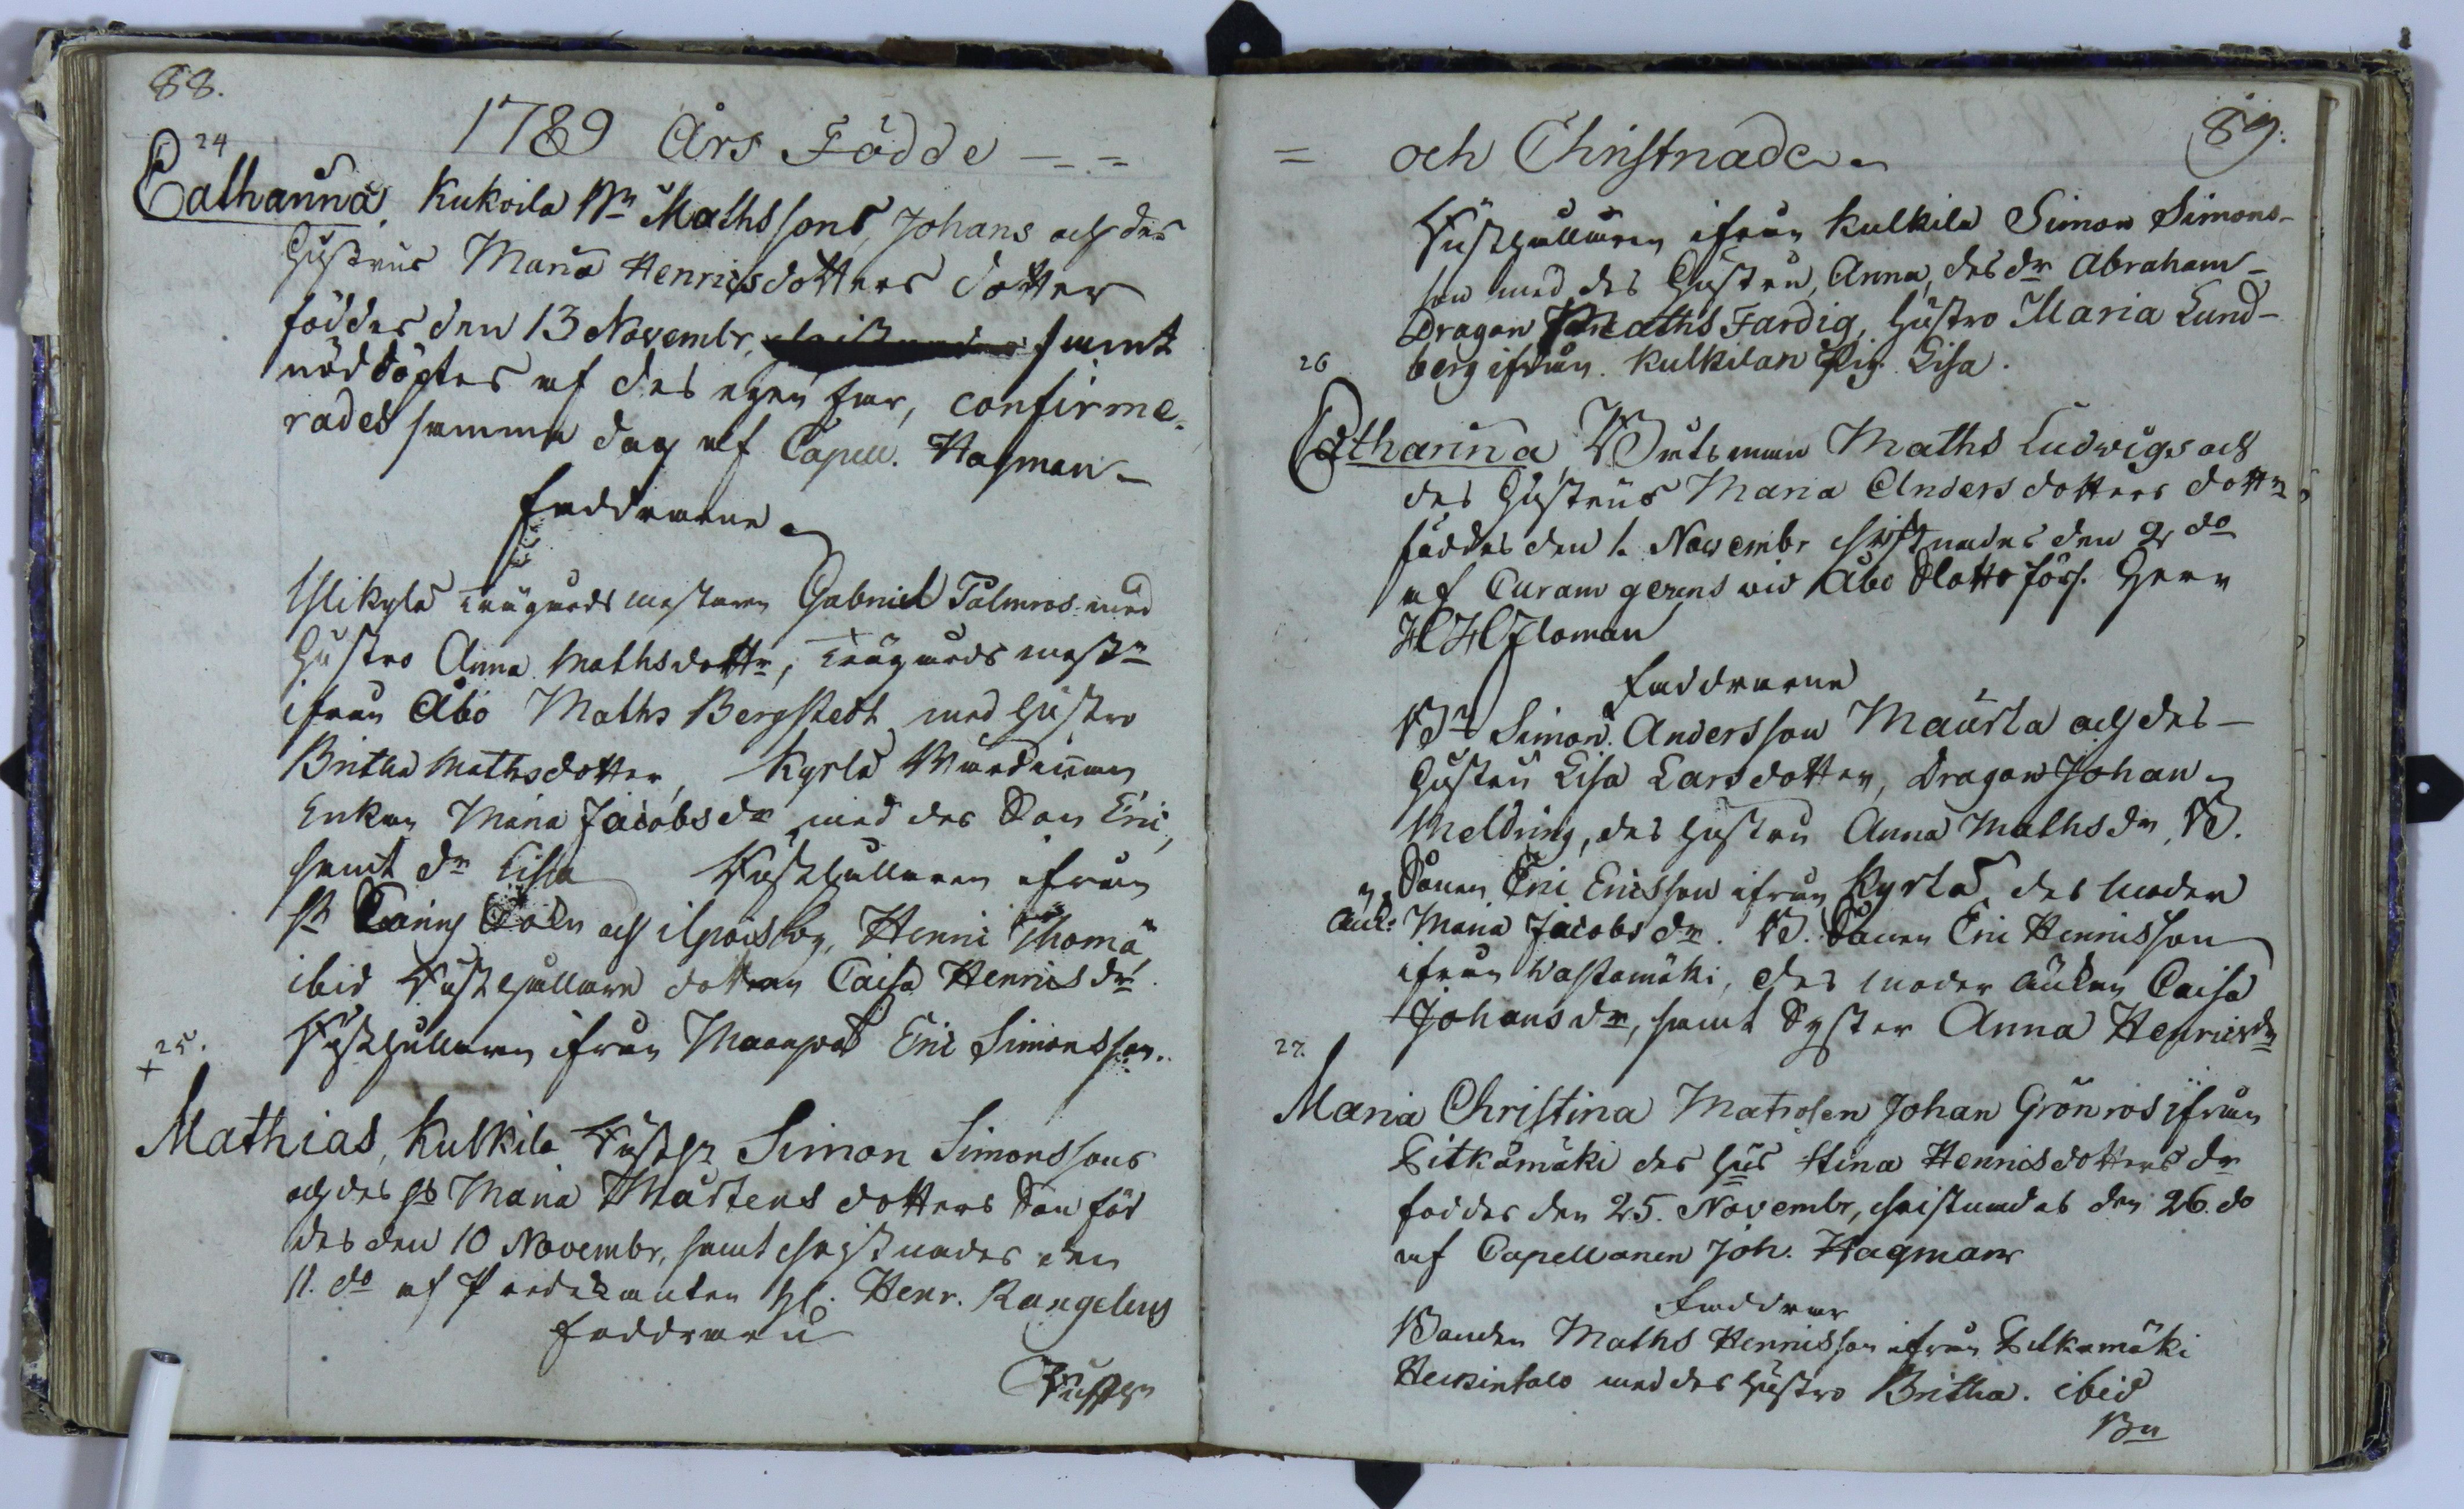 88.
1789 Års Födde
24
Catharina, Kukoila Mathssons, Johans och des
Hustrus Maria Henricsdotters dotter
föddes den 13 Novembr, samt
nöddöptes af des egen far, confirme-
rades samma dag af Capell. Hagman
Faddrarne
Trägårds mestaren Gabriel Palmros med
Hustro Anna Mathsdottr, Trägårds mest
ifrån Åbo Maths Bergstedt med Hustro
Britha Mathsdotter, Kyrla
Enkan Maria Jacobs dr med des Son Eric,
samt dr Lisa Rusthållaren ifrån
och ilpois by, Henric Thomæ
ibid Rusthållare dottren Caisa Henrics dr.
Rusthållaren ifrån Eric Simonsson.
+ 25.
Mathias, Kulkila Simon Simonssons
och des Maria Mårtens dotters Son föd
des den 10 Novembr, samt christnades den
11. do af Predikanten Henr. Rangelius
Faddrarne
89.
= och Christnade
Rusthållaren ifrån Kulkila Simon Simons-
son med des Hustru, Anna, des dr Abraham
Dragon Maths Färdig, Hustro Maria Lund-
berg ifrån Kulkilan Pig. Lisa.
26
Catharina, Båtsman Maths Ludwigs och
des Hustrus Maria Anders dotters dottr,
föddes den 1. Novembr christnades den 2 do
af Curam gerens vid Åbo Slotts förs. Herr
H H Floman
Faddrarne
Br Simon Andersson Maurla och des
Hustru Lisa Larsdotter, Dragon Johan
Meldring, des Hustru Anna Maths dr, B.
Sonen Eric Ericsson ifrån Kyrla des moder
Maria Jacobs dr. B. Sonen Eric Henricsson
ifrån Wastamäki, des moder änkan Caisa
Johans dr, samt Syster Anna Henrics dr
27.
Maria Christina Matrosen Johan Grönros ifrån
Pitkämäki des Hus Stina Henricsdotters dr
föddes den 25. Novembr, christnades den 26. do
af Capellanen Joh. Hagman
Faddrar
Bonden Maths Henricsson ifrån Pitkämäki
Heikintalo med des Hustro Britha. ibid
Bn